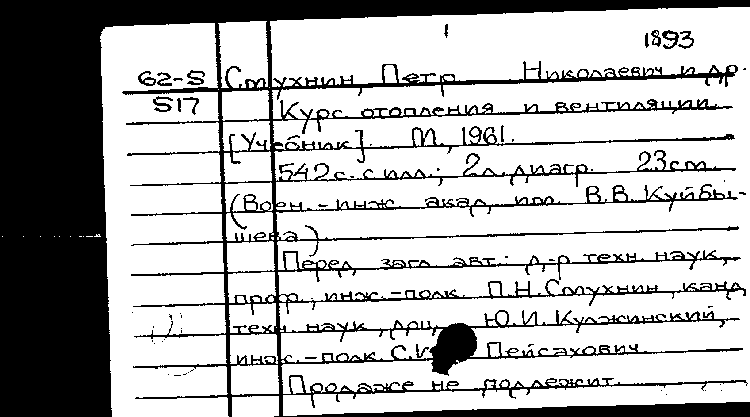 1893
62-S Смухнин, Петр Николаевич и др.
S17 Курс отопления и вентиляции
[Учебник]. М., 1961.
542с. с илл.; 2л. диагр. 23см.
(Воен.-инж. акад. им. В.В. Куйбы-
шева)
Перед загл. авт.: д-р техн. наук,
проф., инж.-полк. П.Н. Смухнин, канд.
техн. наук, доц. Ю.И. Кулжинский,
инж.-полк. Пейсахович.
Продаже не подлежит.